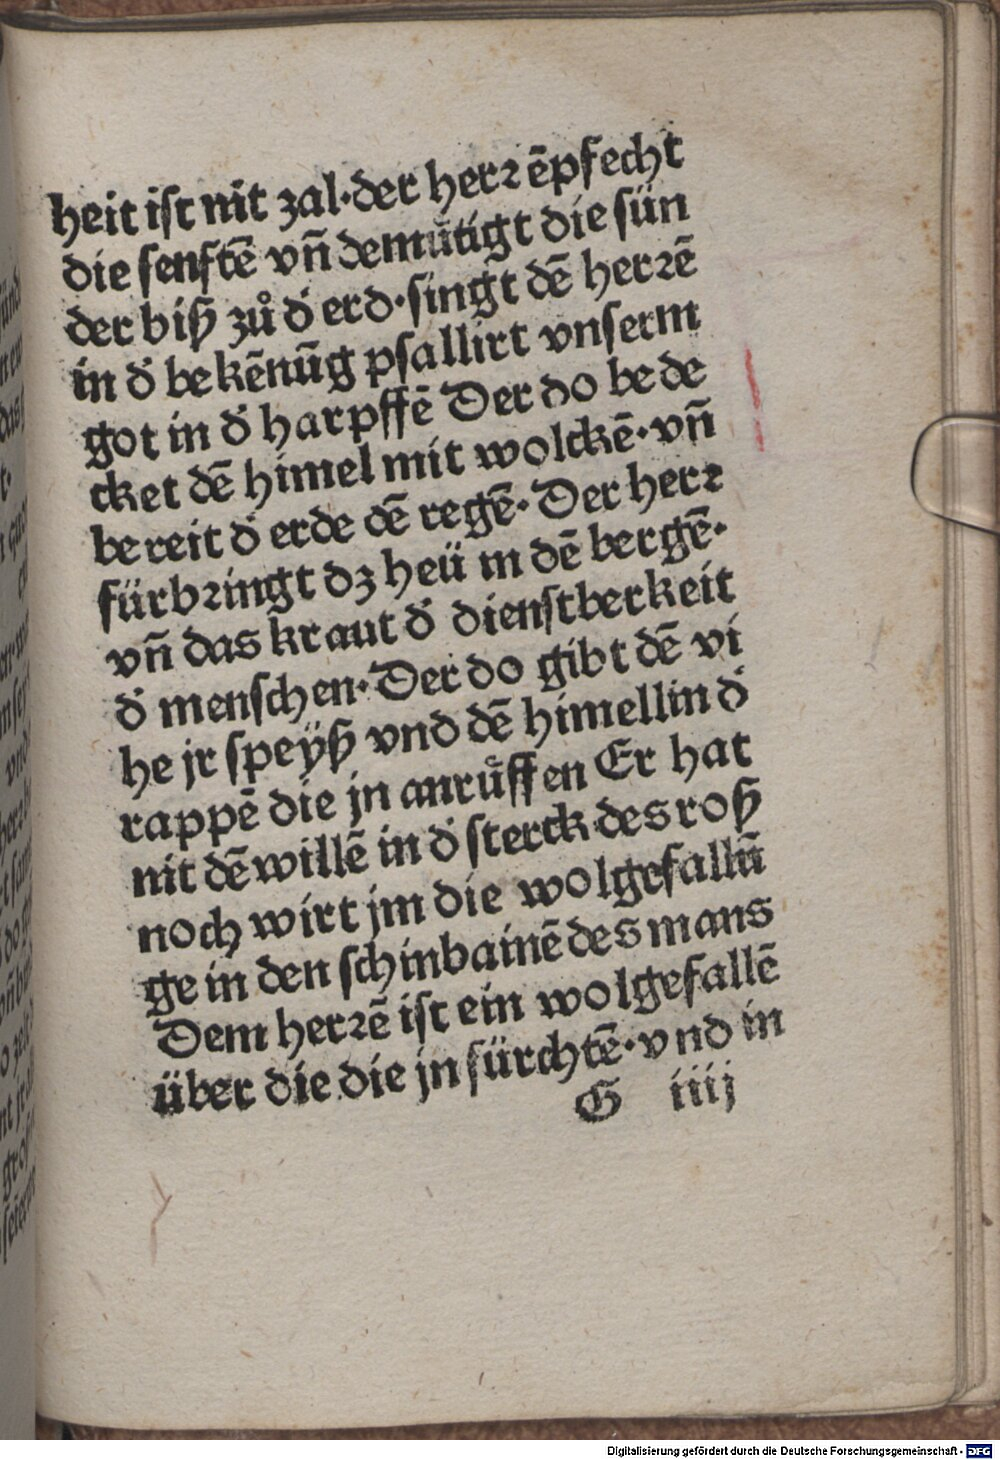 heit ist nit zal·der herr ēpfecht
die senftē vñ demůtigt die sün
der biß zů d̕ erd·singt dē herrē
in d̕ bekēnūg psallirt vnserm
got in d̕ harpffē Der do bede
cket dē himel mit wolckē·vñ
bereit d̕ erde dē regē·Der herr
fürbringt dz heü in dē bergē·
vñ das kraut d̕ dienstberkeit
d̕ menschen·Der do gibt dē vi
he jr speyß vnd dē himellin d̕
rappē die jn anrůffen Er hat
nit dē willē in d̕ sterck des roß
noch wirt jm die wolgefallū
ge in den schinbainē des mans
Dem herrē ist ein wolgefallē
über die die jn fürchtē·vnd in
G iiij
Digitalisierung gefördert durch die Deutsche Forschungsgemeinschaft - DFG